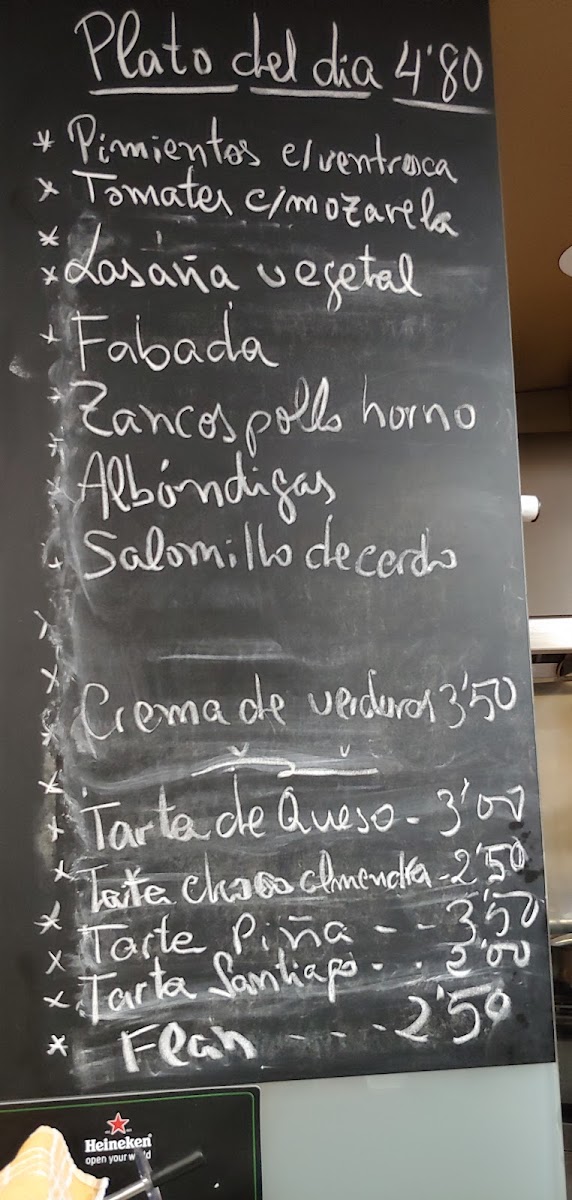 Plato del dia 4'80
* Pimientos c/ventresca
* Tomates c/mozarela
*
* Lasaña vegetal
* Fabada
* Zancos pollo horno
* Albóndigas
* Salomillo de cerdo
Crema de verduras 3'50
Tarta de Queso - 3'00
Tarta choco almendra - 2'50
* Tarte Piña - - 3'50
* Tarta Santiago . . 2'00
* Flan - - - 2'50
Heineken
open your world